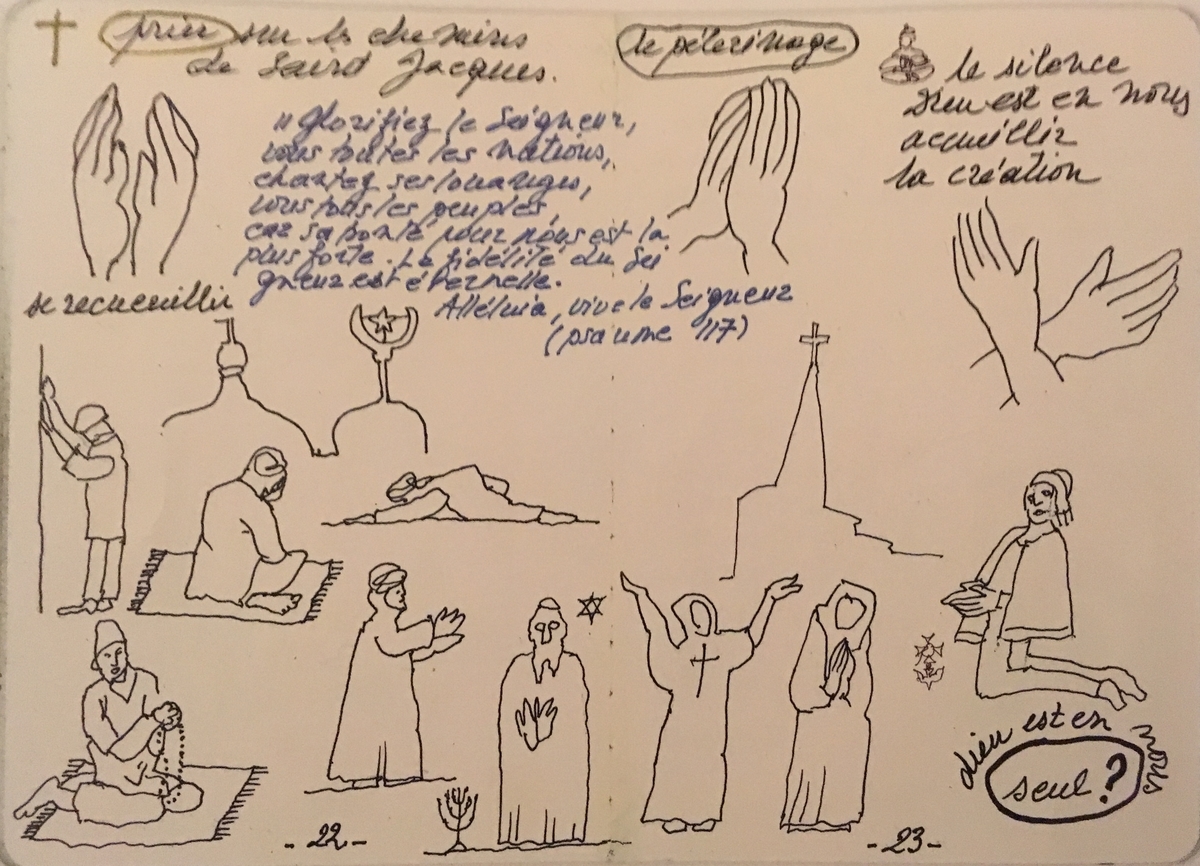 prier sur les chemins
de Saint Jacques.
"Glorifiez le Seigneur,
vous toutes les nations,
chantez ses louanges,
vous tous les peuples,
car sa bonté pour nous est la
plus forte. La fidélité du Sei
gneur est éternelle.
Alléluia, vive le Seigneur
(psaume 117)
se recueillir
- 22 -
le pélerinage
le silence
Dieu est en nous
accueillir
la création
dieu est en nous
seul ?
- 23 -